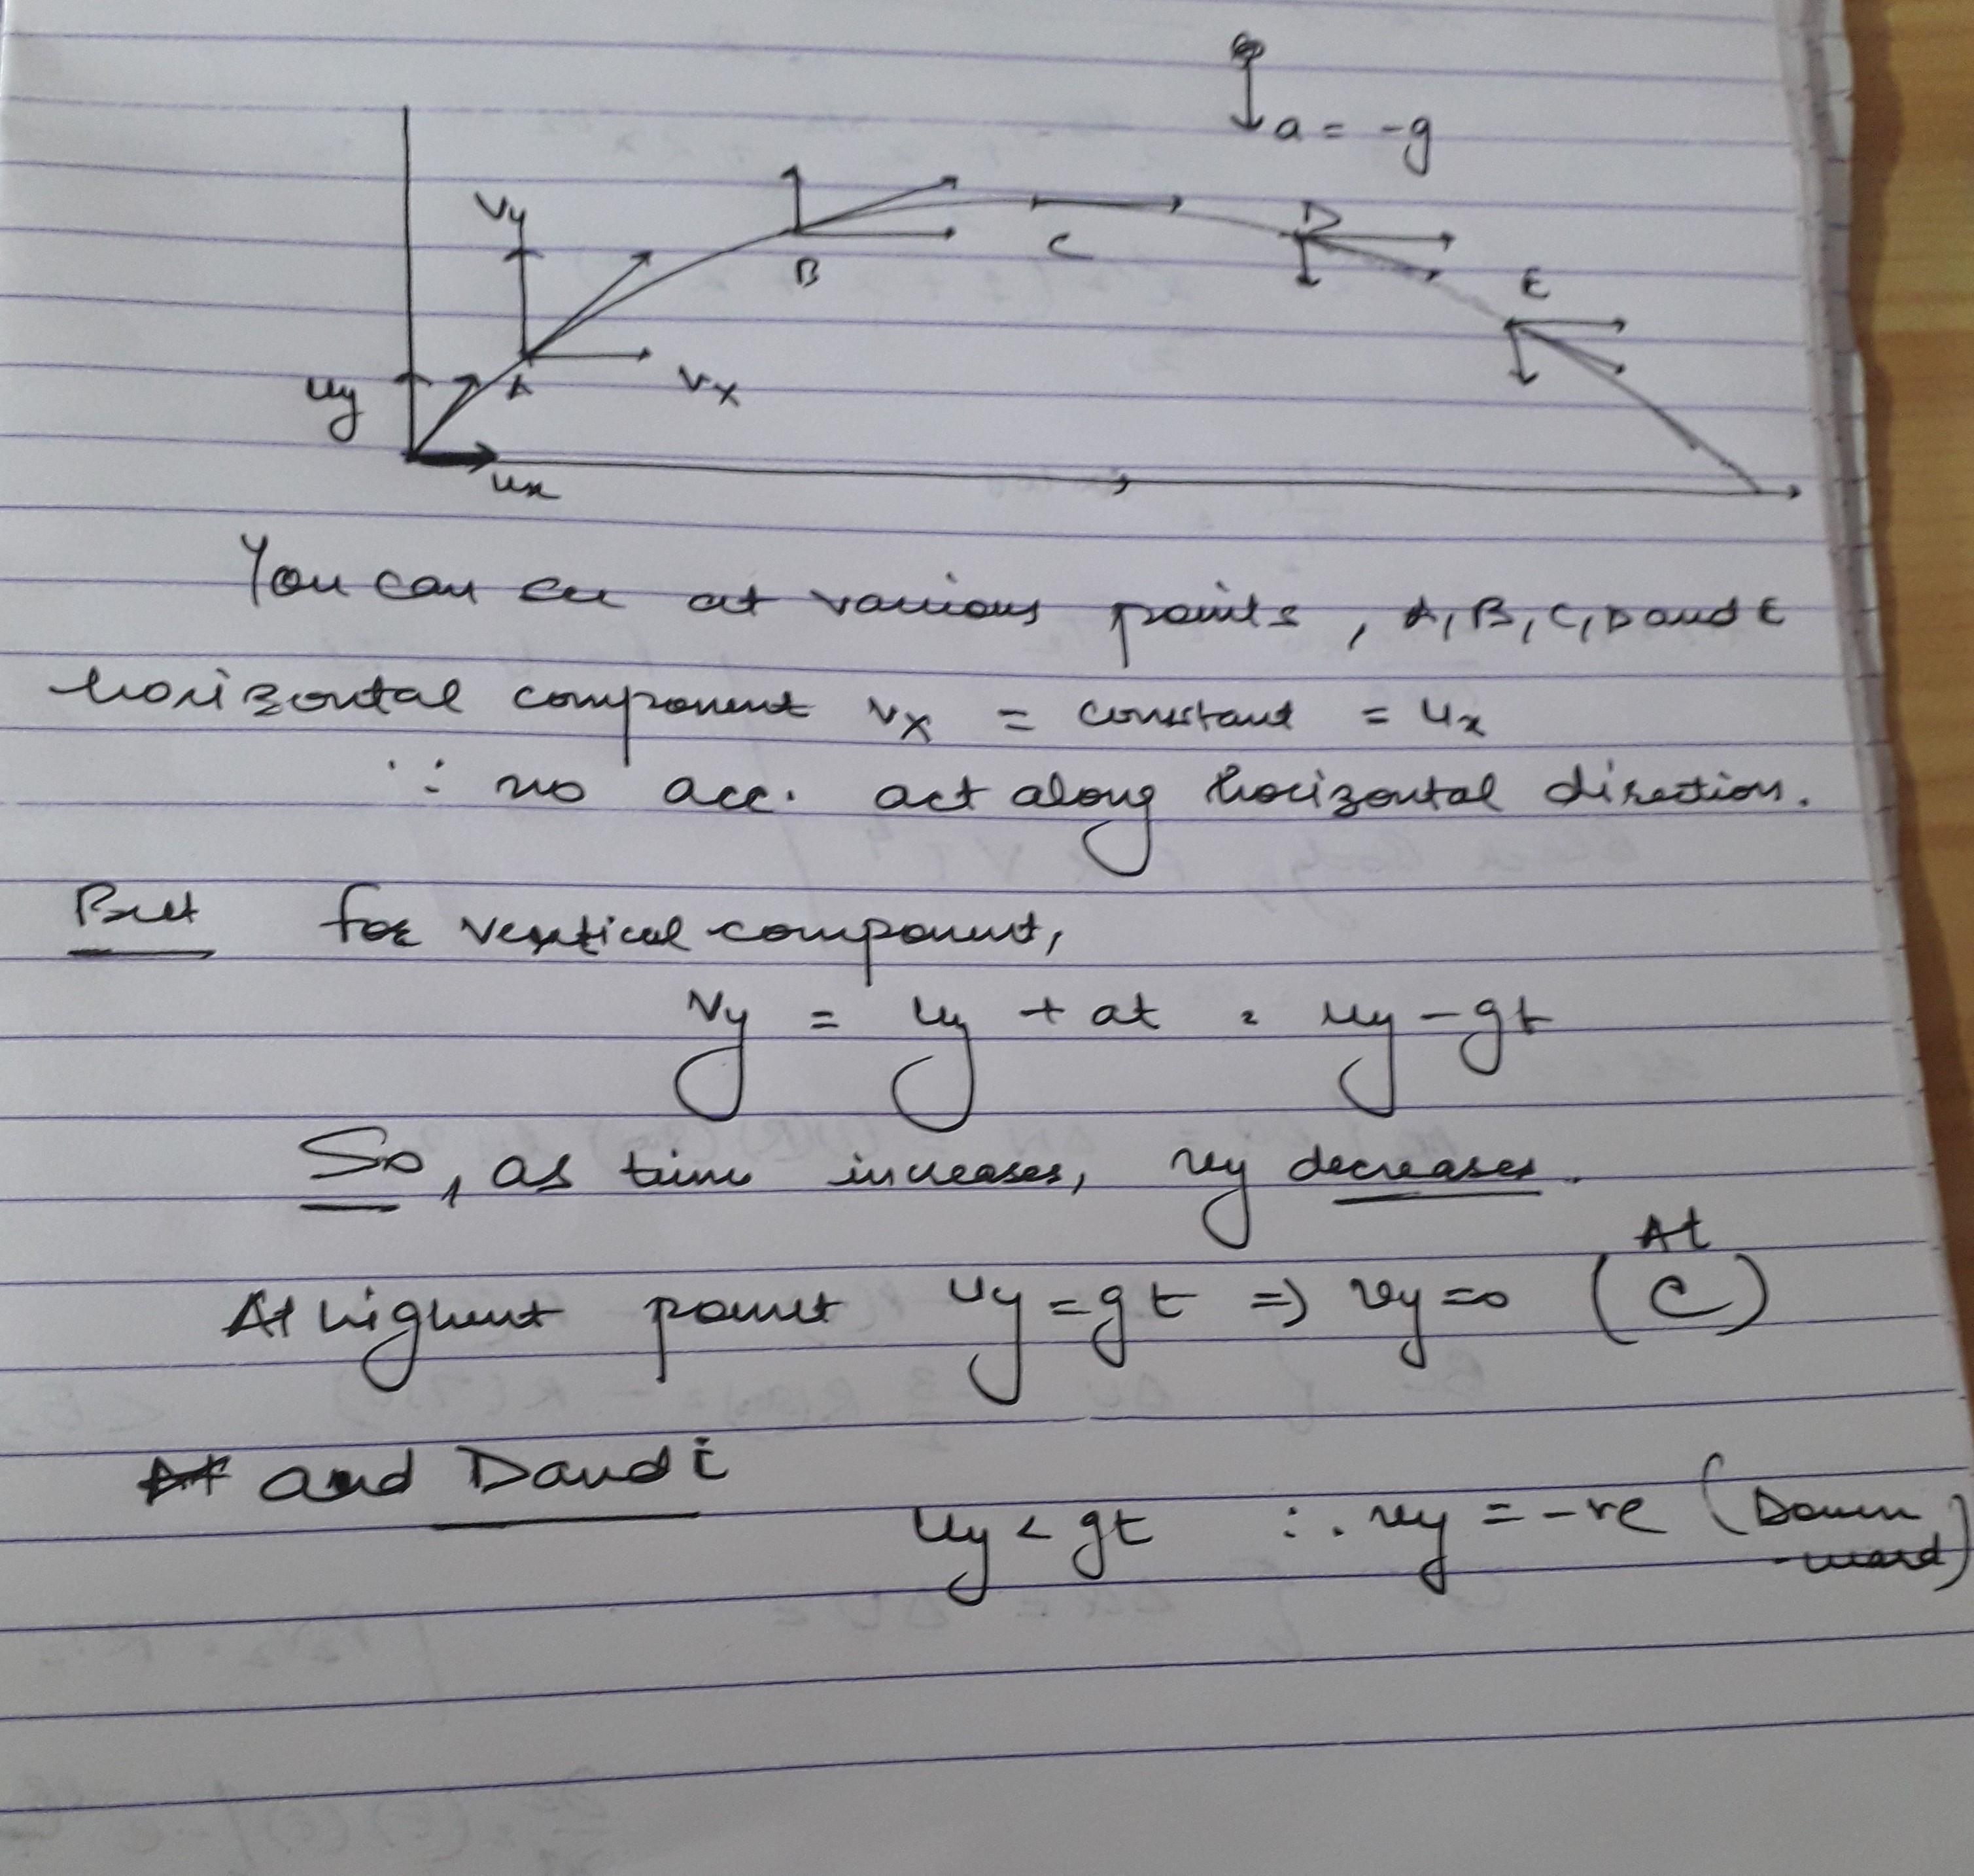 a = -g
Vy
B
C
D
E
A
Vx
uy
ux
You can see at various points, A, B, C, D and E
horizontal component vx = constant = ux
∵ no acc. act along horizontal direction.
But for vertical component,
Vy = uy + at = uy - gt
So, as time increases, vy decreases.
At highest point uy = gt ⇒ vy = 0 (At C)
and D and E
uy < gt ∴ vy = -ve (Down
-ward)